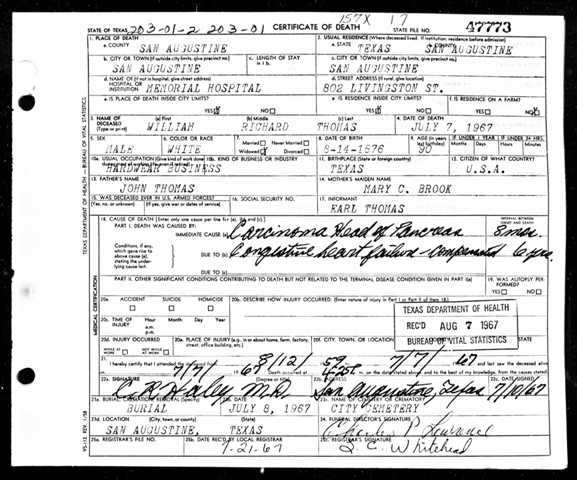 157X 17
STATE OF TEXAS 203-01-2 203-01 CERTIFICATE OF DEATH STATE FILE NO. 47773
1. PLACE OF DEATH 2. USUAL RESIDENCE (Where deceased lived. If institution: residence before admission)
a. COUNTY SAN AUGUSTINE a. STATE TEXAS b. COUNTY SAN AUGUSTINE
b. CITY OR TOWN (If outside city limits, give precinct no.) c. LENGTH OF STAY in 1b. c. CITY OR TOWN (If outside city limits, give precinct no.)
SAN AUGUSTINE SAN AUGUSTINE
d. NAME OF (If not in hospital, give street address) HOSPITAL OR INSTITUTION MEMORIAL HOSPITAL d. STREET ADDRESS (If rural, give location) 802 LIVINGSTON ST.
e. IS PLACE OF DEATH INSIDE CITY LIMITS? YES NO e. IS RESIDENCE INSIDE CITY LIMITS? YES NO f. IS RESIDENCE ON A FARM? YES NO
3. NAME OF DECEASED (Type or print) (a) First (b) Middle (c) Last 4. DATE OF DEATH
WILLIAM RICHARD THOMAS JULY 7, 1967
5. SEX 6. COLOR OR RACE 7. Married Never Married Widowed Divorced 8. DATE OF BIRTH 9. AGE (In years last birthday) IF UNDER 1 YEAR Months Days IF UNDER 24 HRS. Hours Min.
MALE WHITE 8-14-1876 90
10a. USUAL OCCUPATION (Give kind of work done 10b. KIND OF BUSINESS OR INDUSTRY 11. BIRTHPLACE (State or foreign country) 12. CITIZEN OF WHAT COUNTRY?
HARDWEAR BUSINESS TEXAS U.S.A.
13. FATHER'S NAME 14. MOTHER'S MAIDEN NAME
JOHN THOMAS MARY C. BROOK
15. WAS DECEASED EVER IN U.S. ARMED FORCES? 16. SOCIAL SECURITY NO. 17. INFORMANT
(Yes, no, or unknown) (If yes, give war or dates of service) EARL THOMAS
18. CAUSE OF DEATH [Enter only one cause per line for (a), (b), and (c).] INTERVAL BETWEEN ONSET AND DEATH
PART I. DEATH WAS CAUSED BY:
IMMEDIATE CAUSE (a) Carcinoma Head of Pancreas 8 mos.
Conditions, if any, which gave rise to above cause (a), stating the underlying cause last. DUE TO (b) Congestive heart failure - compensated 6 yrs.
DUE TO (c)
PART II. OTHER SIGNIFICANT CONDITIONS CONTRIBUTING TO DEATH BUT NOT RELATED TO THE TERMINAL DISEASE CONDITION GIVEN IN PART I(a) 19. WAS AUTOPSY PERFORMED? YES NO
20a. ACCIDENT SUICIDE HOMICIDE 20b. DESCRIBE HOW INJURY OCCURRED. (Enter nature of injury in Part I or Part II of item 18.)
20c. TIME OF INJURY Hour Month Day Year a.m. p.m.
TEXAS DEPARTMENT OF HEALTH
REC'D AUG 7 1967
BUREAU OF VITAL STATISTICS
20d. INJURY OCCURRED WHILE AT WORK NOT WHILE AT WORK 20e. PLACE OF INJURY (e.g., in or about home, farm, factory, street, office building, etc.) 20f. CITY, TOWN, OR LOCATION COUNTY STATE
21. I hereby certify that I attended the deceased from 8/12/59 to 7/7/67 and last saw the deceased alive
7/7/67 Death occurred at
22a. SIGNATURE (Degree or title) 22b. ADDRESS 22c. DATE SIGNED
C. R. Haley M.D. San Augustine, Texas 7/10/67
23a. BURIAL, CREMATION, REMOVAL (Specify) 23b. DATE 23c. NAME OF CEMETERY OR CREMATORY
BURIAL JULY 8, 1967 CITY CEMETERY
23d. LOCATION (City, town, or county) (State) 24. FUNERAL DIRECTOR'S SIGNATURE
SAN AUGUSTINE, TEXAS Charles P. Lawrence
25a. REGISTRAR'S FILE NO. 25b. DATE REC'D BY LOCAL REGISTRAR 25c. REGISTRAR'S SIGNATURE
7-21-67 Whitehead
TEXAS DEPARTMENT OF HEALTH — BUREAU OF VITAL STATISTICS
MEDICAL CERTIFICATION